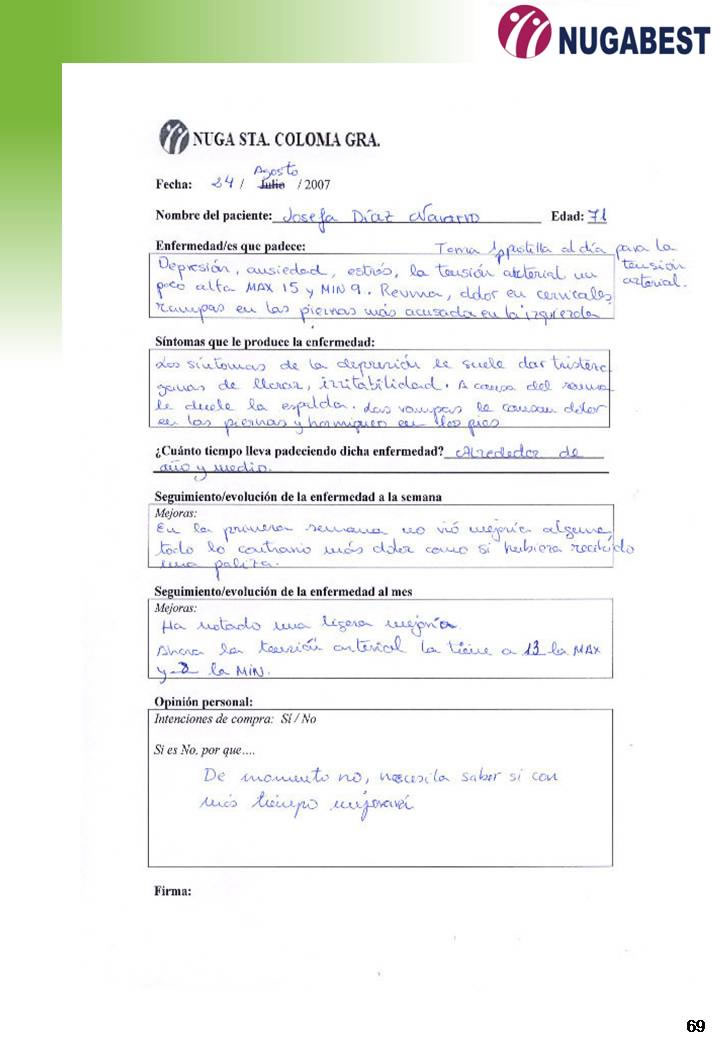 NUGABEST
NUGA STA. COLOMA GRA.
Agosto
Fecha: 24 / Julio / 2007
Nombre del paciente: Josefa Díaz Navarro Edad: 71
Enfermedad/es que padece: Toma 1 pastilla al día para la
tensión
arterial.
Depresión, ansiedad, estrés, la tensión arterial un
poco alta MAX 15 y MIN 9. Reuma, dolor en cervicales,
rampas en las piernas más acusada en la izquierda
Síntomas que le produce la enfermedad:
Los síntomas de la depresión le suele dar tristeza
ganas de llorar, irritabilidad. A causa del reuma
le duele la espalda. Las rampas le causan dolor
en las piernas y hormigueo en los pies
¿Cuánto tiempo lleva padeciendo dicha enfermedad? Alrededor de
año y medio.
Seguimiento/evolución de la enfermedad a la semana
Mejoras:
En la primera semana no vió mejoría alguna,
todo lo contrario más dolor como si hubiera recibido
una paliza.
Seguimiento/evolución de la enfermedad al mes
Mejoras:
Ha notado una ligera mejoría
Ahora la tensión arterial la tiene a 13 la MAX
y la MIN.
Opinión personal:
Intenciones de compra: Sí / No
Si es No, por que....
De momento no, necesita saber si con
más tiempo mejorará
Firma:
69